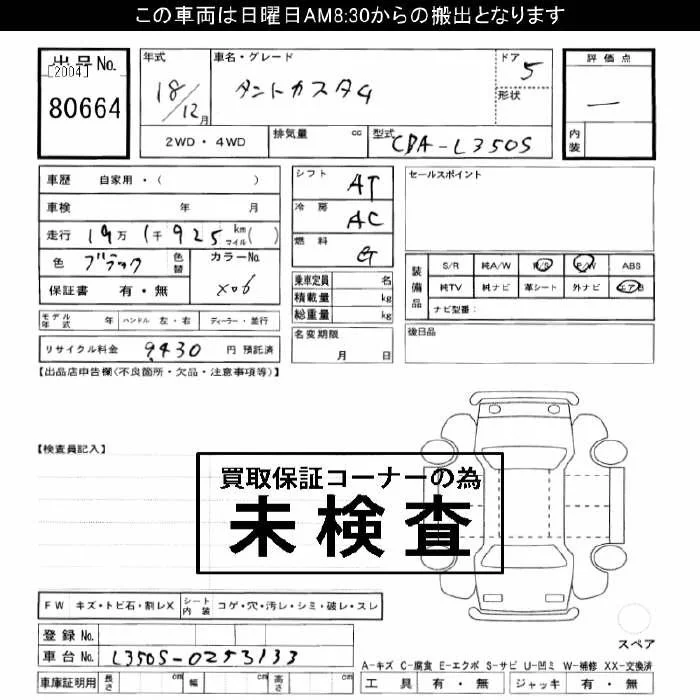 この車両は日曜日AM8:30からの搬出となります
出品No.
[2004]
80664
年式
18/12月
車名・グレード
タントカスタム
ドア
5
形状
評価点
—
内装
2WD・4WD
排気量 cc
型式 CBA-L350S
車歴 自家用・( )
車検 年 月
走行 19万1千925 km マイル( )
色 ブラック 色替
カラーNo.
X06
保証書 有・無
シフト AT
冷房 AC
燃料 G
セールスポイント
乗車定員 名
積載量 kg
総重量 kg
装備品
S/R 純A/W P/S P/W ABS
純TV 純ナビ 革シート 外ナビ エアB
ナビ型番:
モデル年式 年 ハンドル 左・右 ディーラー・並行
名変期限
月 日
後日品
リサイクル料金 9430 円 預託済
【出品店申告欄(不良箇所・欠品・注意事項等)】
【検査員記入】
買取保証コーナーの為
未検査
FW キズ・トビ石・割レX シート内装 コゲ・穴・汚レ・シミ・破レ・スレ
登録No.
車台No. L350S-0253133
スペア
A-キズ C-腐食 E-エクボ S-サビ U-凹ミ W-補修 XX-交換済
車庫証明用 長さ cm 幅 cm 高さ cm
工具 有・無 ジャッキ 有・無